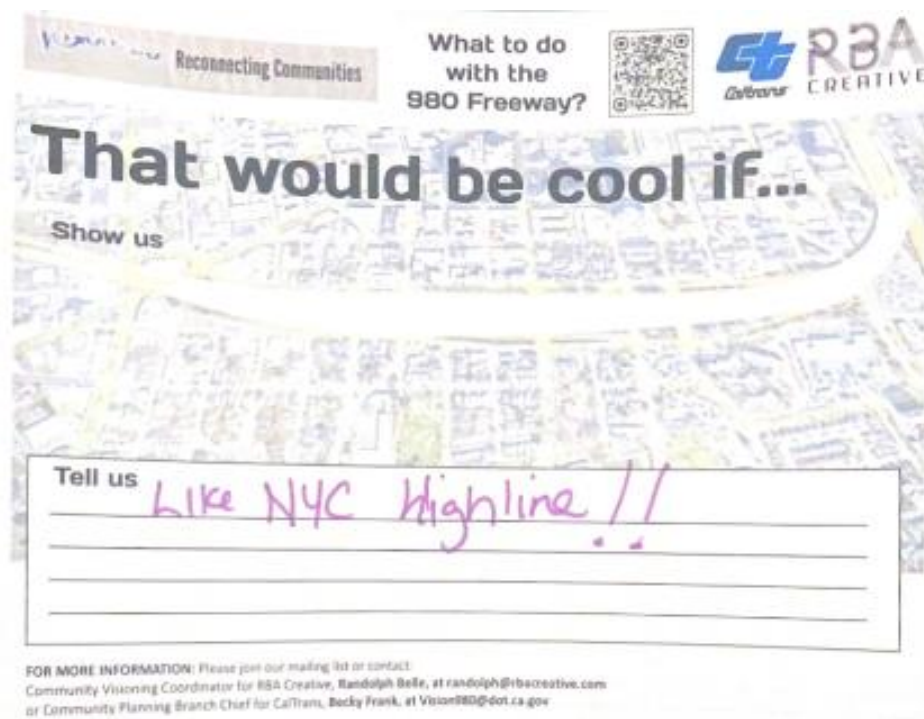 Reconnecting Communities
What to do
with the
980 Freeway?
Caltrans
RBA
CREATIVE
That would be cool if...
Show us
Tell us
Like NYC Highline!!
FOR MORE INFORMATION: Please join our mailing list or contact
Community Visioning Coordinator for RBA Creative, Randolph Belle, at randolph@rbacreative.com
or Community Planning Branch Chief for CalTrans, Becky Frank, at Vision980@dot.ca.gov